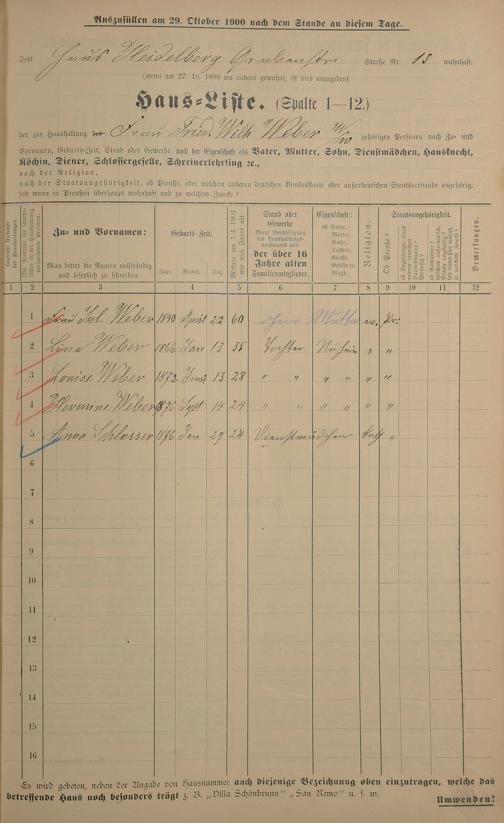 Auszufüllen am 29. Oktober 1900 nach dem Stande an diesem Tage.
Jetzt Haus Heidelberg Grabenstr Straße Nr. 13 wohnhaft.
(wenn am 27. 10. 1899 wo anders gewohnt, ist dies anzugeben)
Haus-Liste. (Spalte 1—12.)
der zur Haushaltung des Frau Fried. Wilh Weber gehörigen Personen nach Zu- und
Vornamen, Geburts-Zeit, Stand oder Gewerbe, nach der Eigenschaft als Vater, Mutter, Sohn, Dienstmädchen, Hausknecht,
Köchin, Diener, Schlossergeselle, Schreinerlehrling ec.,
nach der Religion,
nach der Staatsangehörigkeit, ob Preuße, oder welchem anderen deutschen Bundesstaate oder außerdeutschen Staatsverbande angehörig,
seit wann in Preußen überhaupt wohnhaft und zu welchem Zwecke?
Zu- und Vornamen:
Man bittet die Namen vollständig und leserlich zu schreiben.
Geburts-Zeit.
Jahr. Monat. Tag.
Stand oder Gewerbe
der über 16 Jahre alten Familienmitglieder.
Eigenschaft:
ob Vater, Mutter, Sohn, Tochter, Knecht, Koch, Geselle o. Magd.
Religion.
Staatsangehörigkeit.
Ob Preuße?
Bemerkungen.
1 2 3 4 5 6 7 8 9 10 11 12
1 Frau Weber 1840 April 22 60 ohne Mutter ev. Pr.
2 Lina Weber 1866 Jan 13 35 Tochter " "
3 Louise Weber 1872 Juni 13 28 " " " " " "
4 Hermine Weber 1876 Sept 14 24 " " " " " "
5 Anna Schlosser 1876 Jan 29 24 Dienstmädchen kath "
6
7
8
9
10
11
12
13
14
15
16
Es wird gebeten, neben der Angabe von Hausnummer auch diejenige Bezeichnung oben einzutragen, welche das
betreffende Haus noch besonders trägt z. B. „Villa Schönbrunn" „San Remo" u. s. w.
Umwenden!